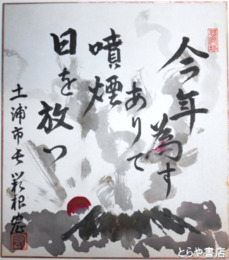 今年為す
ありて
噴煙
日を放つ
土浦市長
とらや書店